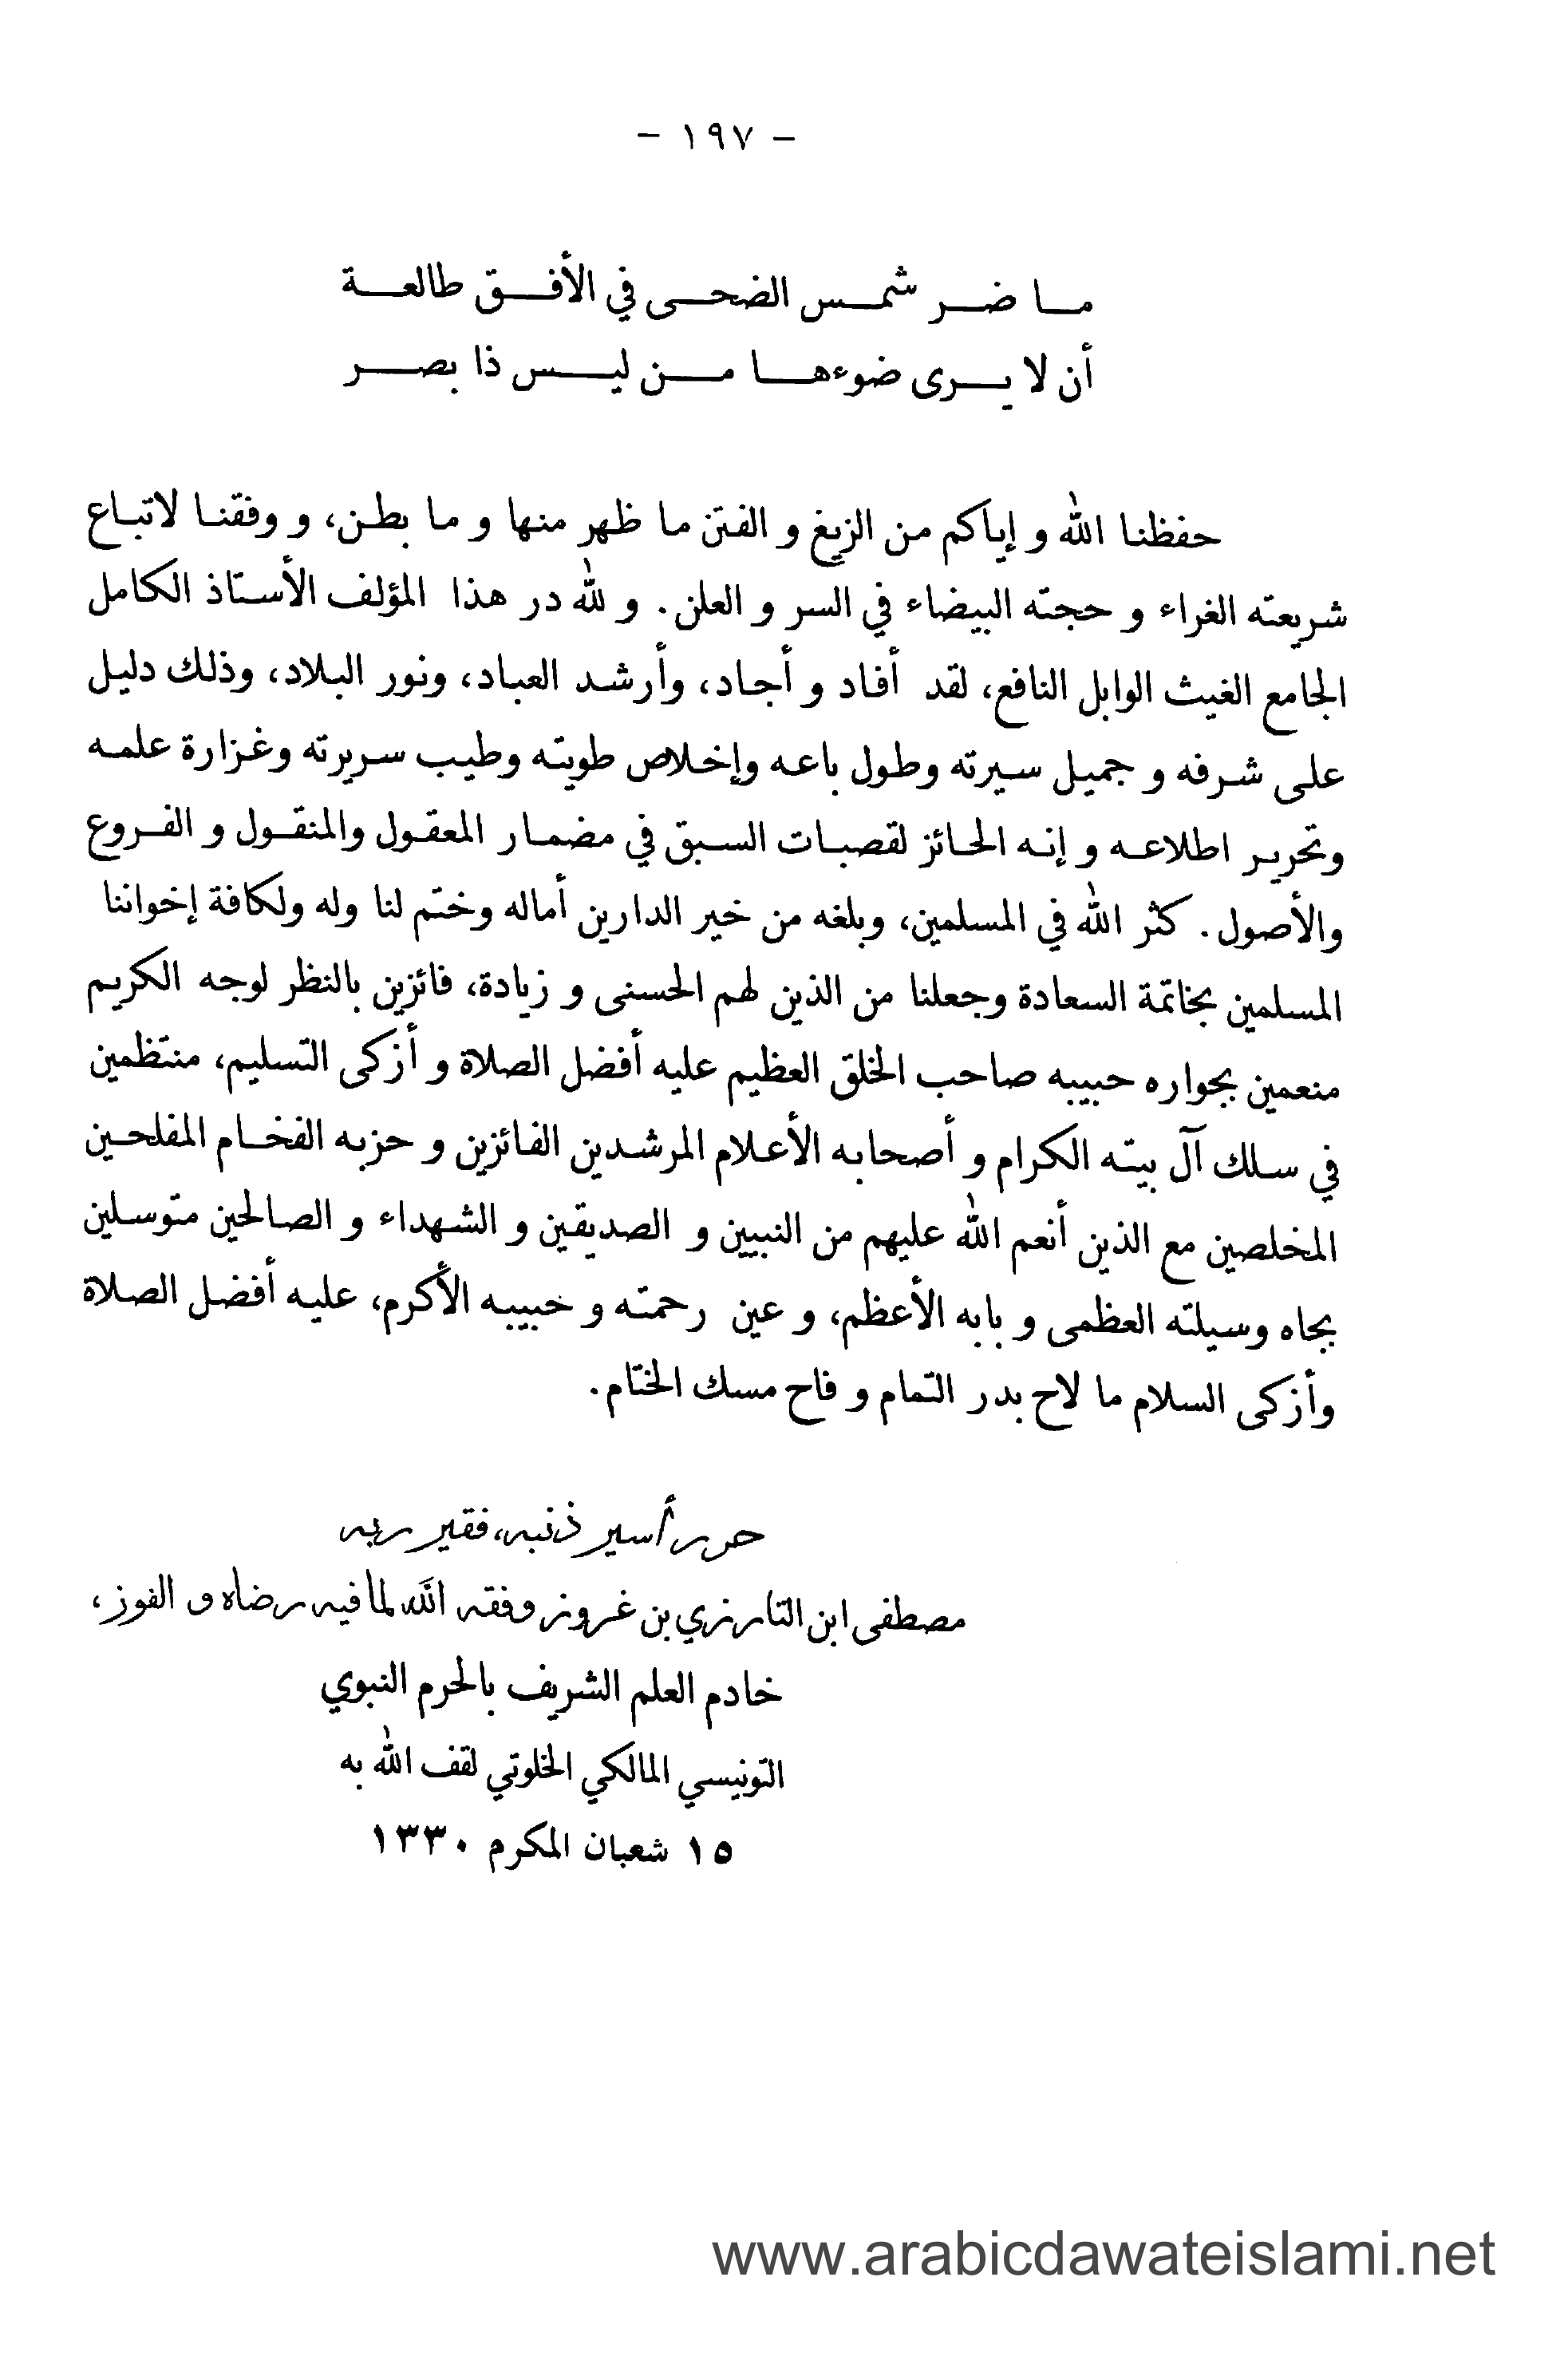 - ١٩٧ -
ما ضر شمس الضحى في الأفق طالعة
أن لا يرى ضوءها من ليس ذا بصر
حفظنا الله و إياكم من الزيغ و الفتن ما ظهر منها و ما بطن، و وفقنا لاتباع
شريعته الغراء و حجته البيضاء في السر و العلن. و لله در هذا المؤلف الأستاذ الكامل
الجامع الغيث الوابل النافع، لقد أفاد و أجاد، وأرشد العباد، ونور البلاد، وذلك دليل
على شرفه و جميل سيرته وطول باعه وإخلاص طويته وطيب سريرته وغزارة علمه
وتحرير اطلاعه و إنه الحائز لقصبات السبق في مضمار المعقول والمنقول و الفروع
والأصول. كثر الله في المسلمين، وبلغه من خير الدارين أماله وختم لنا وله ولكافة إخواننا
المسلمين بخاتمة السعادة وجعلنا من الذين لهم الحسنى و زيادة، فائزين بالنظر لوجه الكريم
منعمين بجواره حبيبه صاحب الخلق العظيم عليه أفضل الصلاة و أزكى التسليم، منتظمين
في سلك آل بيته الكرام و أصحابه الأعلام المرشدين الفائزين و حزبه الفخام المفلحين
المخلصين مع الذين أنعم الله عليهم من النبيين و الصديقين و الشهداء و الصالحين متوسلين
بجاه وسيلته العظمى و بابه الأعظم، و عين رحمته و خبيبه الأكرم، عليه أفضل الصلاة
وأزكى السلام ما لاح بدر التمام و فاح مسك الختام.
حرر أسير ذنبه، فقير ربه
مصطفى ابن التارزي بن غروز وفقه الله لما فيه رضاه و الفوز،
خادم العلم الشريف بالحرم النبوي
التونيسي المالكي الخلوتي لقف الله به
١٥ شعبان المكرم ١٣٣٠
www.arabicdawateislami.net